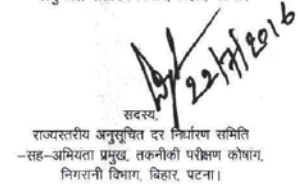 22/7/2016
सदस्य,
राज्यस्तरीय अनुसूचित दर निर्धारण समिति
-सह-अभियंता प्रमुख, तकनीकी परीक्षण कोषांग,
निगरानी विभाग, बिहार, पटना।